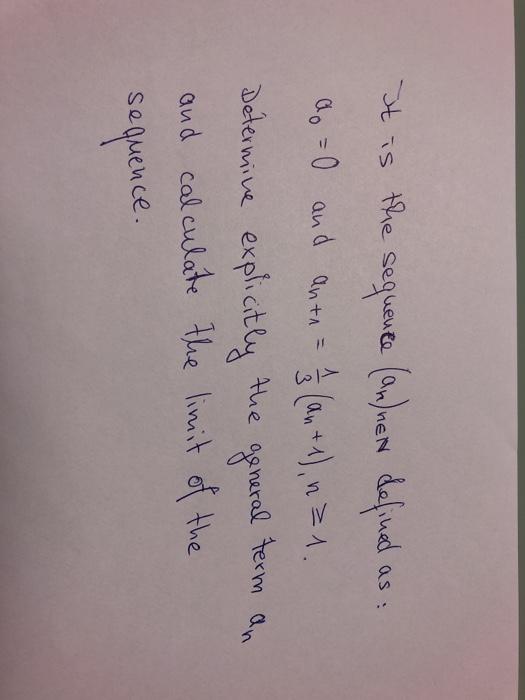 It is the sequence (an)n∈N defined as:
a0 = 0 and an+1 = 1/3 (an + 1), n ≥ 1.
Determine explicitly the general term an
and calculate the limit of the
sequence.